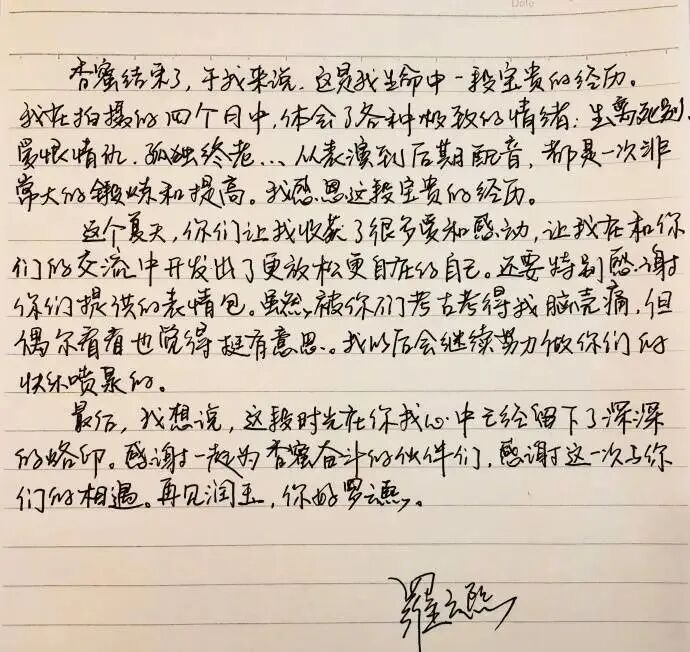 Date
香蜜结束了，于我来说，这是我生命中一段宝贵的经历。
我在拍摄的四个月中，体会了各种极致的情绪：生离死别、
爱恨情仇、孤独终老…从表演到后期配音，都是一次非
常大的锻炼和提高。我感恩这段宝贵的经历。
这个夏天，你们让我收获了很多爱和感动，让我在和你
们的交流中开发出了更放松更自在的自己。还要特别感谢
你们提供的表情包。虽然，被你们考古考得我脑壳痛，但
偶尔看看也觉得挺有意思。我以后会继续努力做你们的
快乐喷泉的。
最后，我想说，这段时光在你我心中已经留下了深深
的烙印。感谢一起为香蜜奋斗的伙伴们，感谢这一次与你
们的相遇。再见润玉，你好罗云熙。
羅云熙